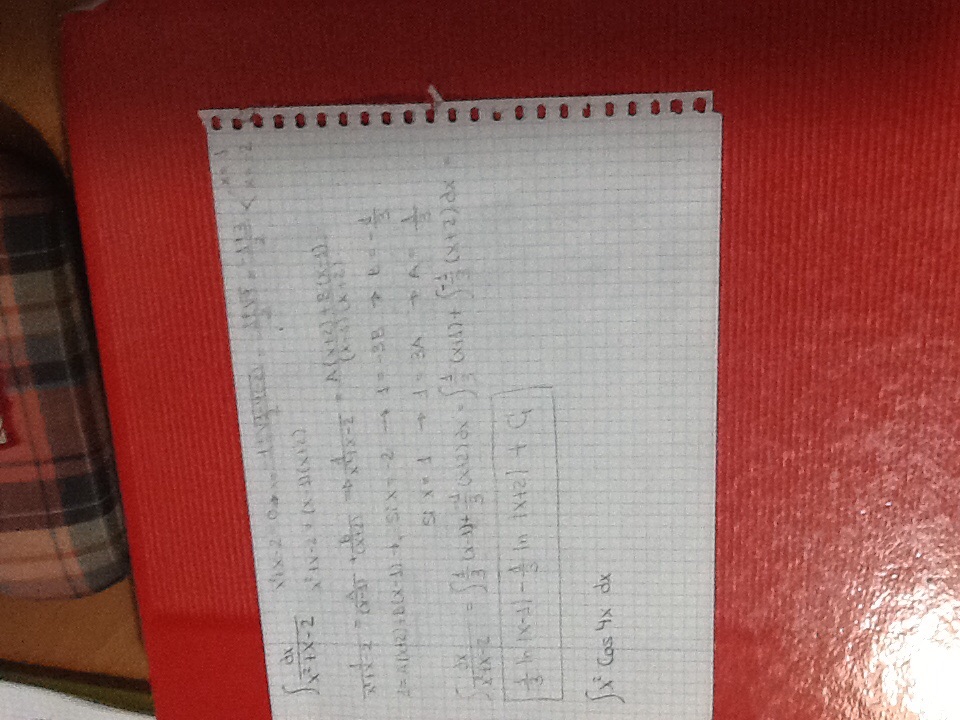 ∫ dx/(x²+x-2)   x²+x-2 = 0 → x = (-1±√(1-4(-2)))/2 = (-1±√9)/2 = (-1±3)/2 < x=1 x=-2
x²+x-2 = (x-1)(x+2)
1/(x²+x-2) = A/(x-1) + B/(x+2) → 1/(x²+x-2) = (A(x+2)+B(x-1))/((x-1)(x+2))
1 = A(x+2)+B(x-1) → Si x=-2 → 1=-3B → B=-1/3
Si x=1 → 1=3A → A=1/3
∫ dx/(x²+x-2) = ∫ 1/3 (x-1) + -1/3 (x+2) dx = ∫ 1/3 (x-1) + ∫ -1/3 (x+2) dx =
1/3 ln |x-1| - 1/3 ln |x+2| + C
∫ x² cos 4x dx